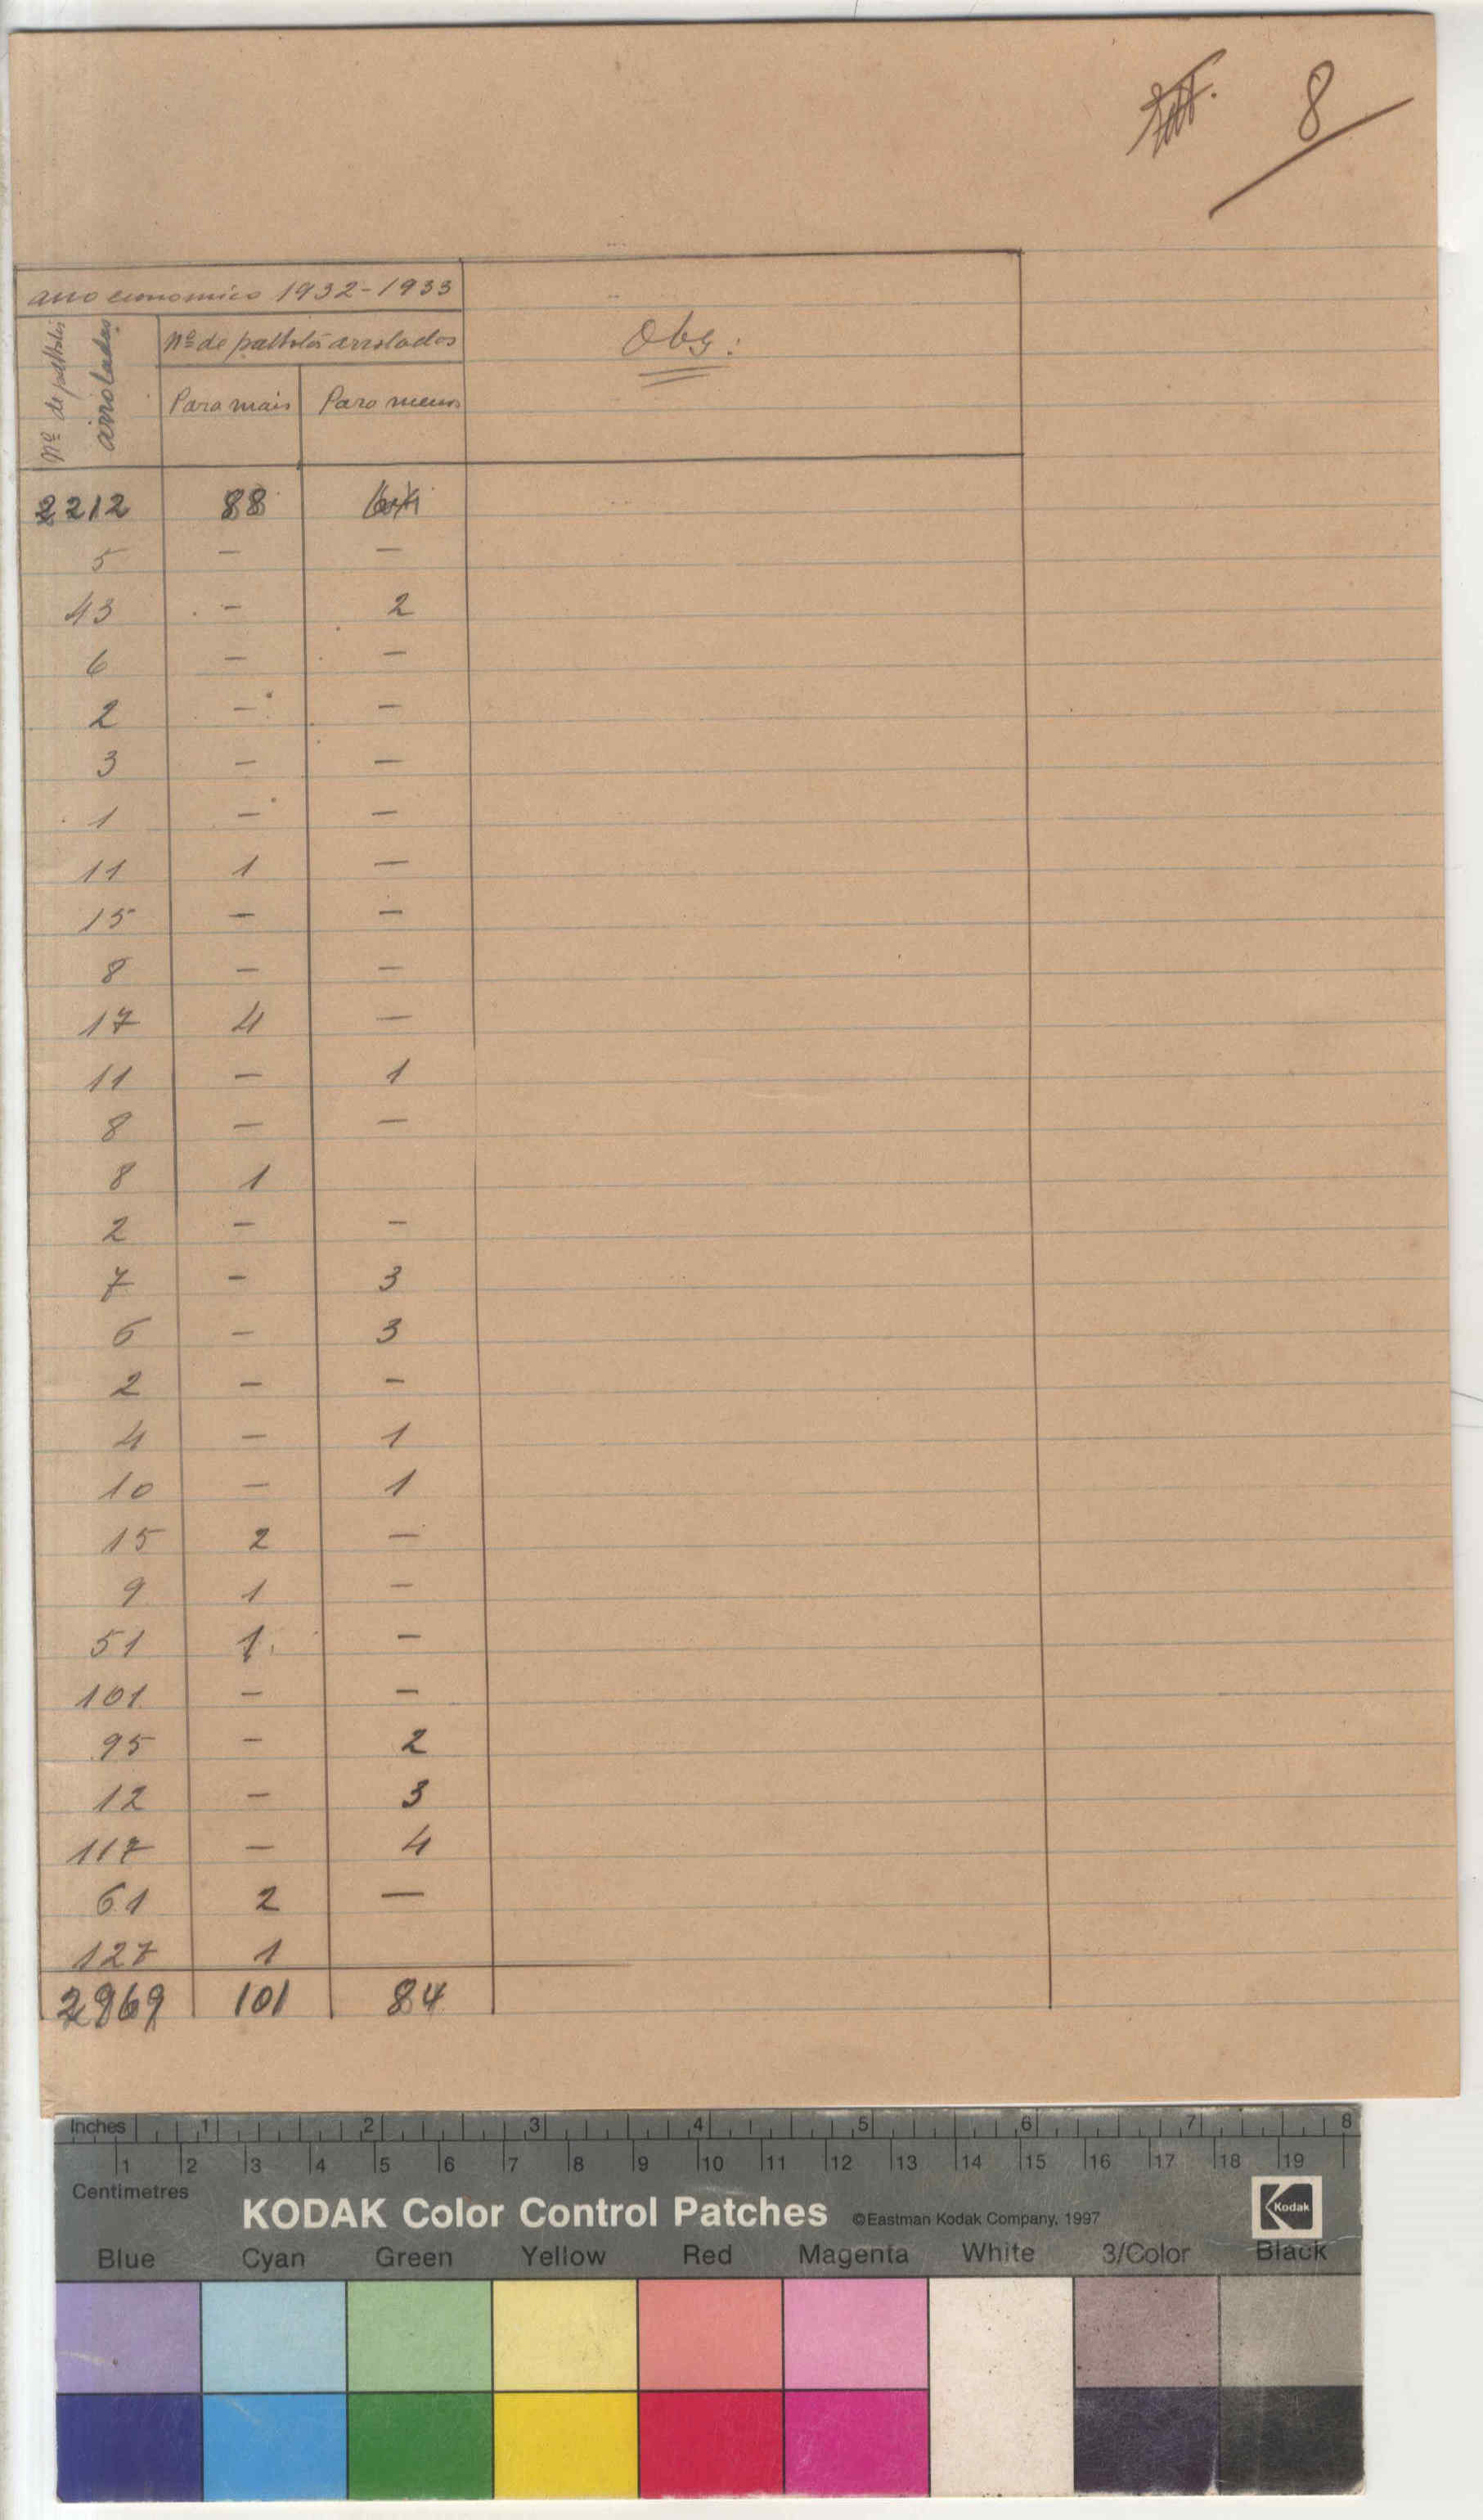 8
ano economico 1932-1933
Nº de palhotas arroladas
Nº de palhotas arrolados
Obs:
Para mais Para menos
2212 88
5 — —
43 — 2
6 — —
2 — —
3 — —
1 — —
11 1 —
15 — —
8 — —
17 4 —
11 — 1
8 — —
8 1
2 — —
7 — 3
6 — 3
2 — —
4 — 1
10 — 1
15 2 —
9 1 —
51 1 —
101 — —
95 — 2
12 — 3
117 — 4
61 2 —
127 1
2969 101 84
Inches 1 2 3 4 5 6 7 8
1 2 3 4 5 6 7 8 9 10 11 12 13 14 15 16 17 18 19
Centimetres
KODAK Color Control Patches ©Eastman Kodak Company, 1997 Kodak
Blue Cyan Green Yellow Red Magenta White 3/Color Black